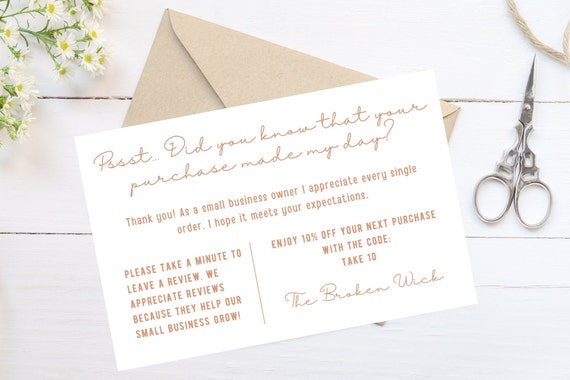 Pssst... Did you know that your
purchase made my day?
Thank you! As a small business owner I appreciate every single
order. I hope it meets your expectations.
PLEASE TAKE A MINUTE TO
LEAVE A REVIEW. WE
APPRECIATE REVIEWS
BECAUSE THEY HELP OUR
SMALL BUSINESS GROW!
ENJOY 10% OFF YOUR NEXT PURCHASE
WITH THE CODE:
TAKE 10
The Broken Wick